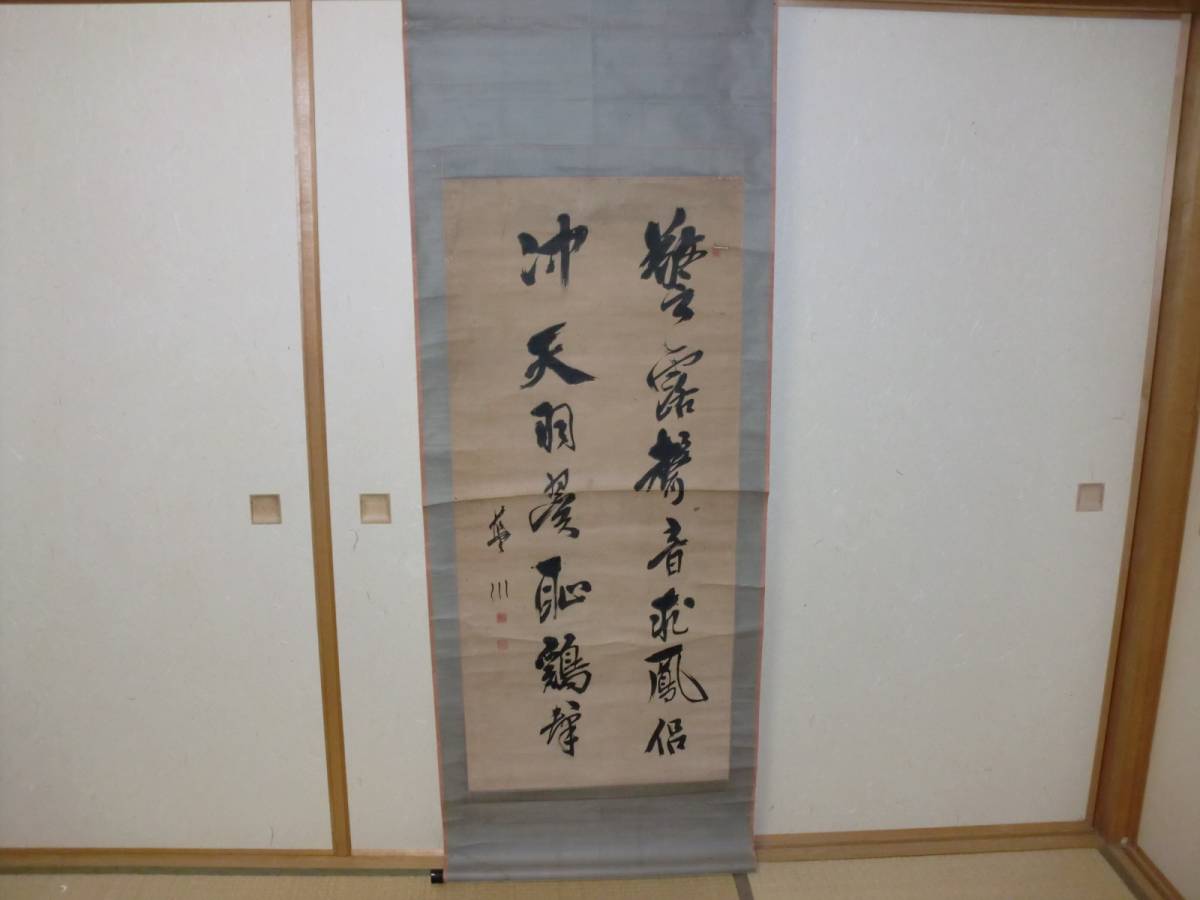 警露聲音求鳳侶
沖天羽翼恥鷄群
華川